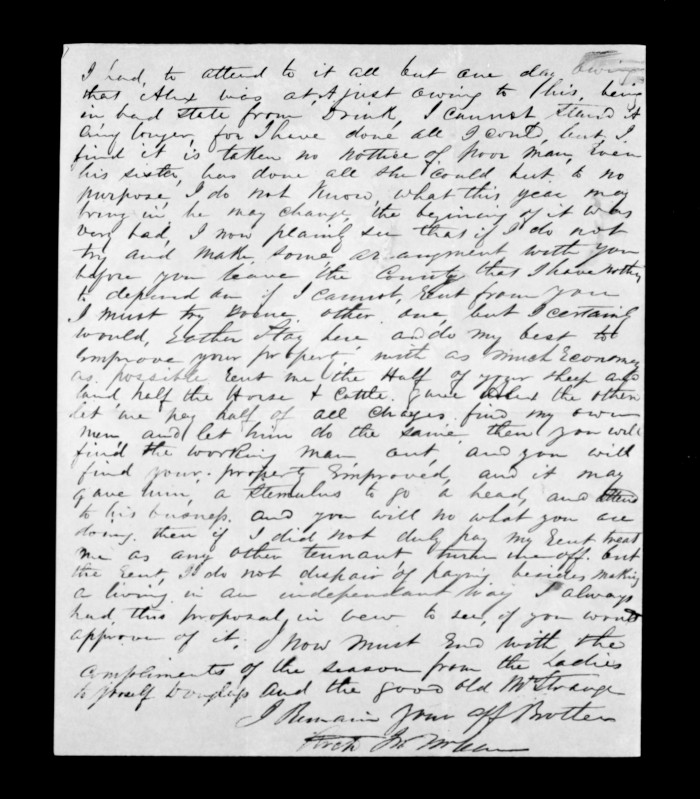 I had, to attend to it all but one day owing
that Alex was at A just owing to this, being
in bad state from Drink, I cannot stand it
any longer, for I have done all I could, but I
find it is taken no nottice of, poor man, Even
his sister, has done all she could but to no
purpose, I do not know, what this year may
bring in he may change, the begining of it was
very bad, I now plainly see that if I do not
try and make some arangment with you
before you leave the County that I have nothing
to depend on if I cannot, Rent from you
I must try some other one but I certainly
would, Eather Stay here and do my best to
Improve your property, with as much Economy
as possible Rent me the Half of your sheep and
land half the Horse & Cattle. gave Alex the other
let me pay half of all charges find my own
men and let him do the same then you will
find the working man out and you will
find your property Emproved, and it may
gave him, a stemulus to go a head, and attend
to his busness. and you will no what you are
doing. then if I did not duly pay my Rent treat
me as any other tennant turn me off. but
the Rent, I do not dispair of paying besides making
a living in an independant way I always
had, this proposal, in vew to see, if you would
approve of it, I now must End with the
Compliments, of the season from the Ladies
to yourself Douglass and the good old Mr Strange
I Remain your aff Brother
Arch Jn McLean